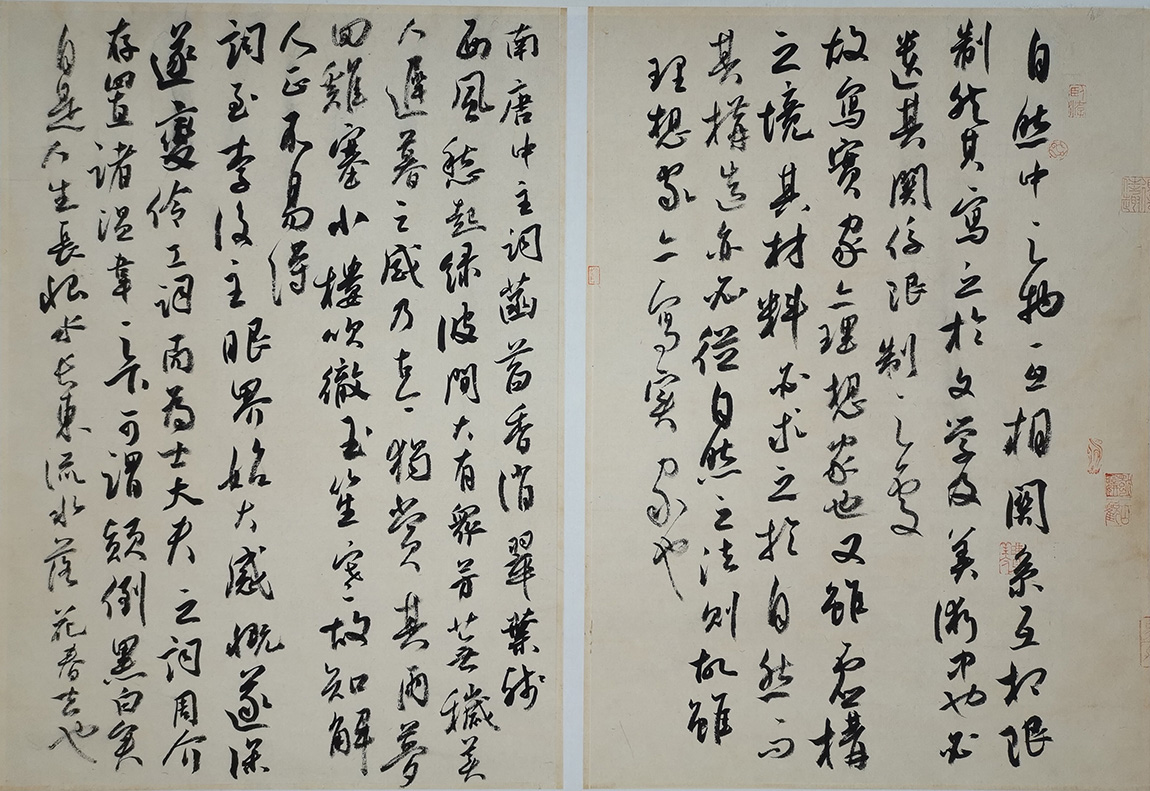 自然中之物互相關系互相限
制然其寫之於文學及美術中也必
遺其關係限制之處
故寫實家亦理想家也又雖虛構
之境其材料必求之於自然而
其構造亦必從自然之法則故雖
理想家亦寫實家也
南唐中主詞菡萏香消翠葉殘
西風愁起綠波間大有眾芳蕪穢美
人遲暮之感乃古今獨賞其雨夢
回雞塞小樓吹徹玉笙寒故知解
人正不易得
詞至李後主眼界始大感慨遂深
遂變伶工詞而為士大夫之詞周介
存置諸溫韋之下可謂顛倒黑白矣
自是人生長恨水長東流水落花春去也